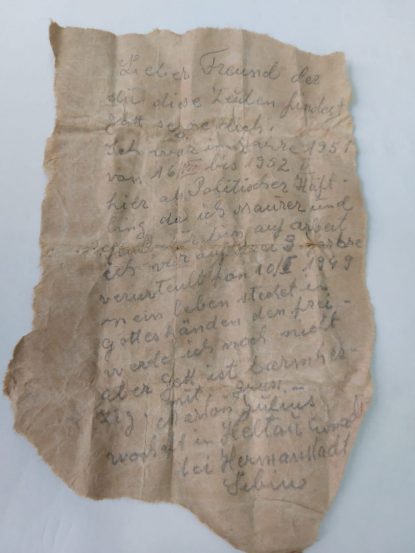 Lieber Freund der
du diese Zeilen findest
Gott segne dich.
Ich war im Jahre 1951
von 16 bis 1952
hier als Politischer Häft-
ling da ich Maurer und
auf arbeit
ich war auf 3 Jahre
verurteilt von 10/II 1949
mein leben stehet in
gotteshänden den frei-
werde ich noch nicht
aber gott ist barmher-
zig. mit Gruss
Julius
wohaft in Heltau
bei Hermanstadt
Sibiu